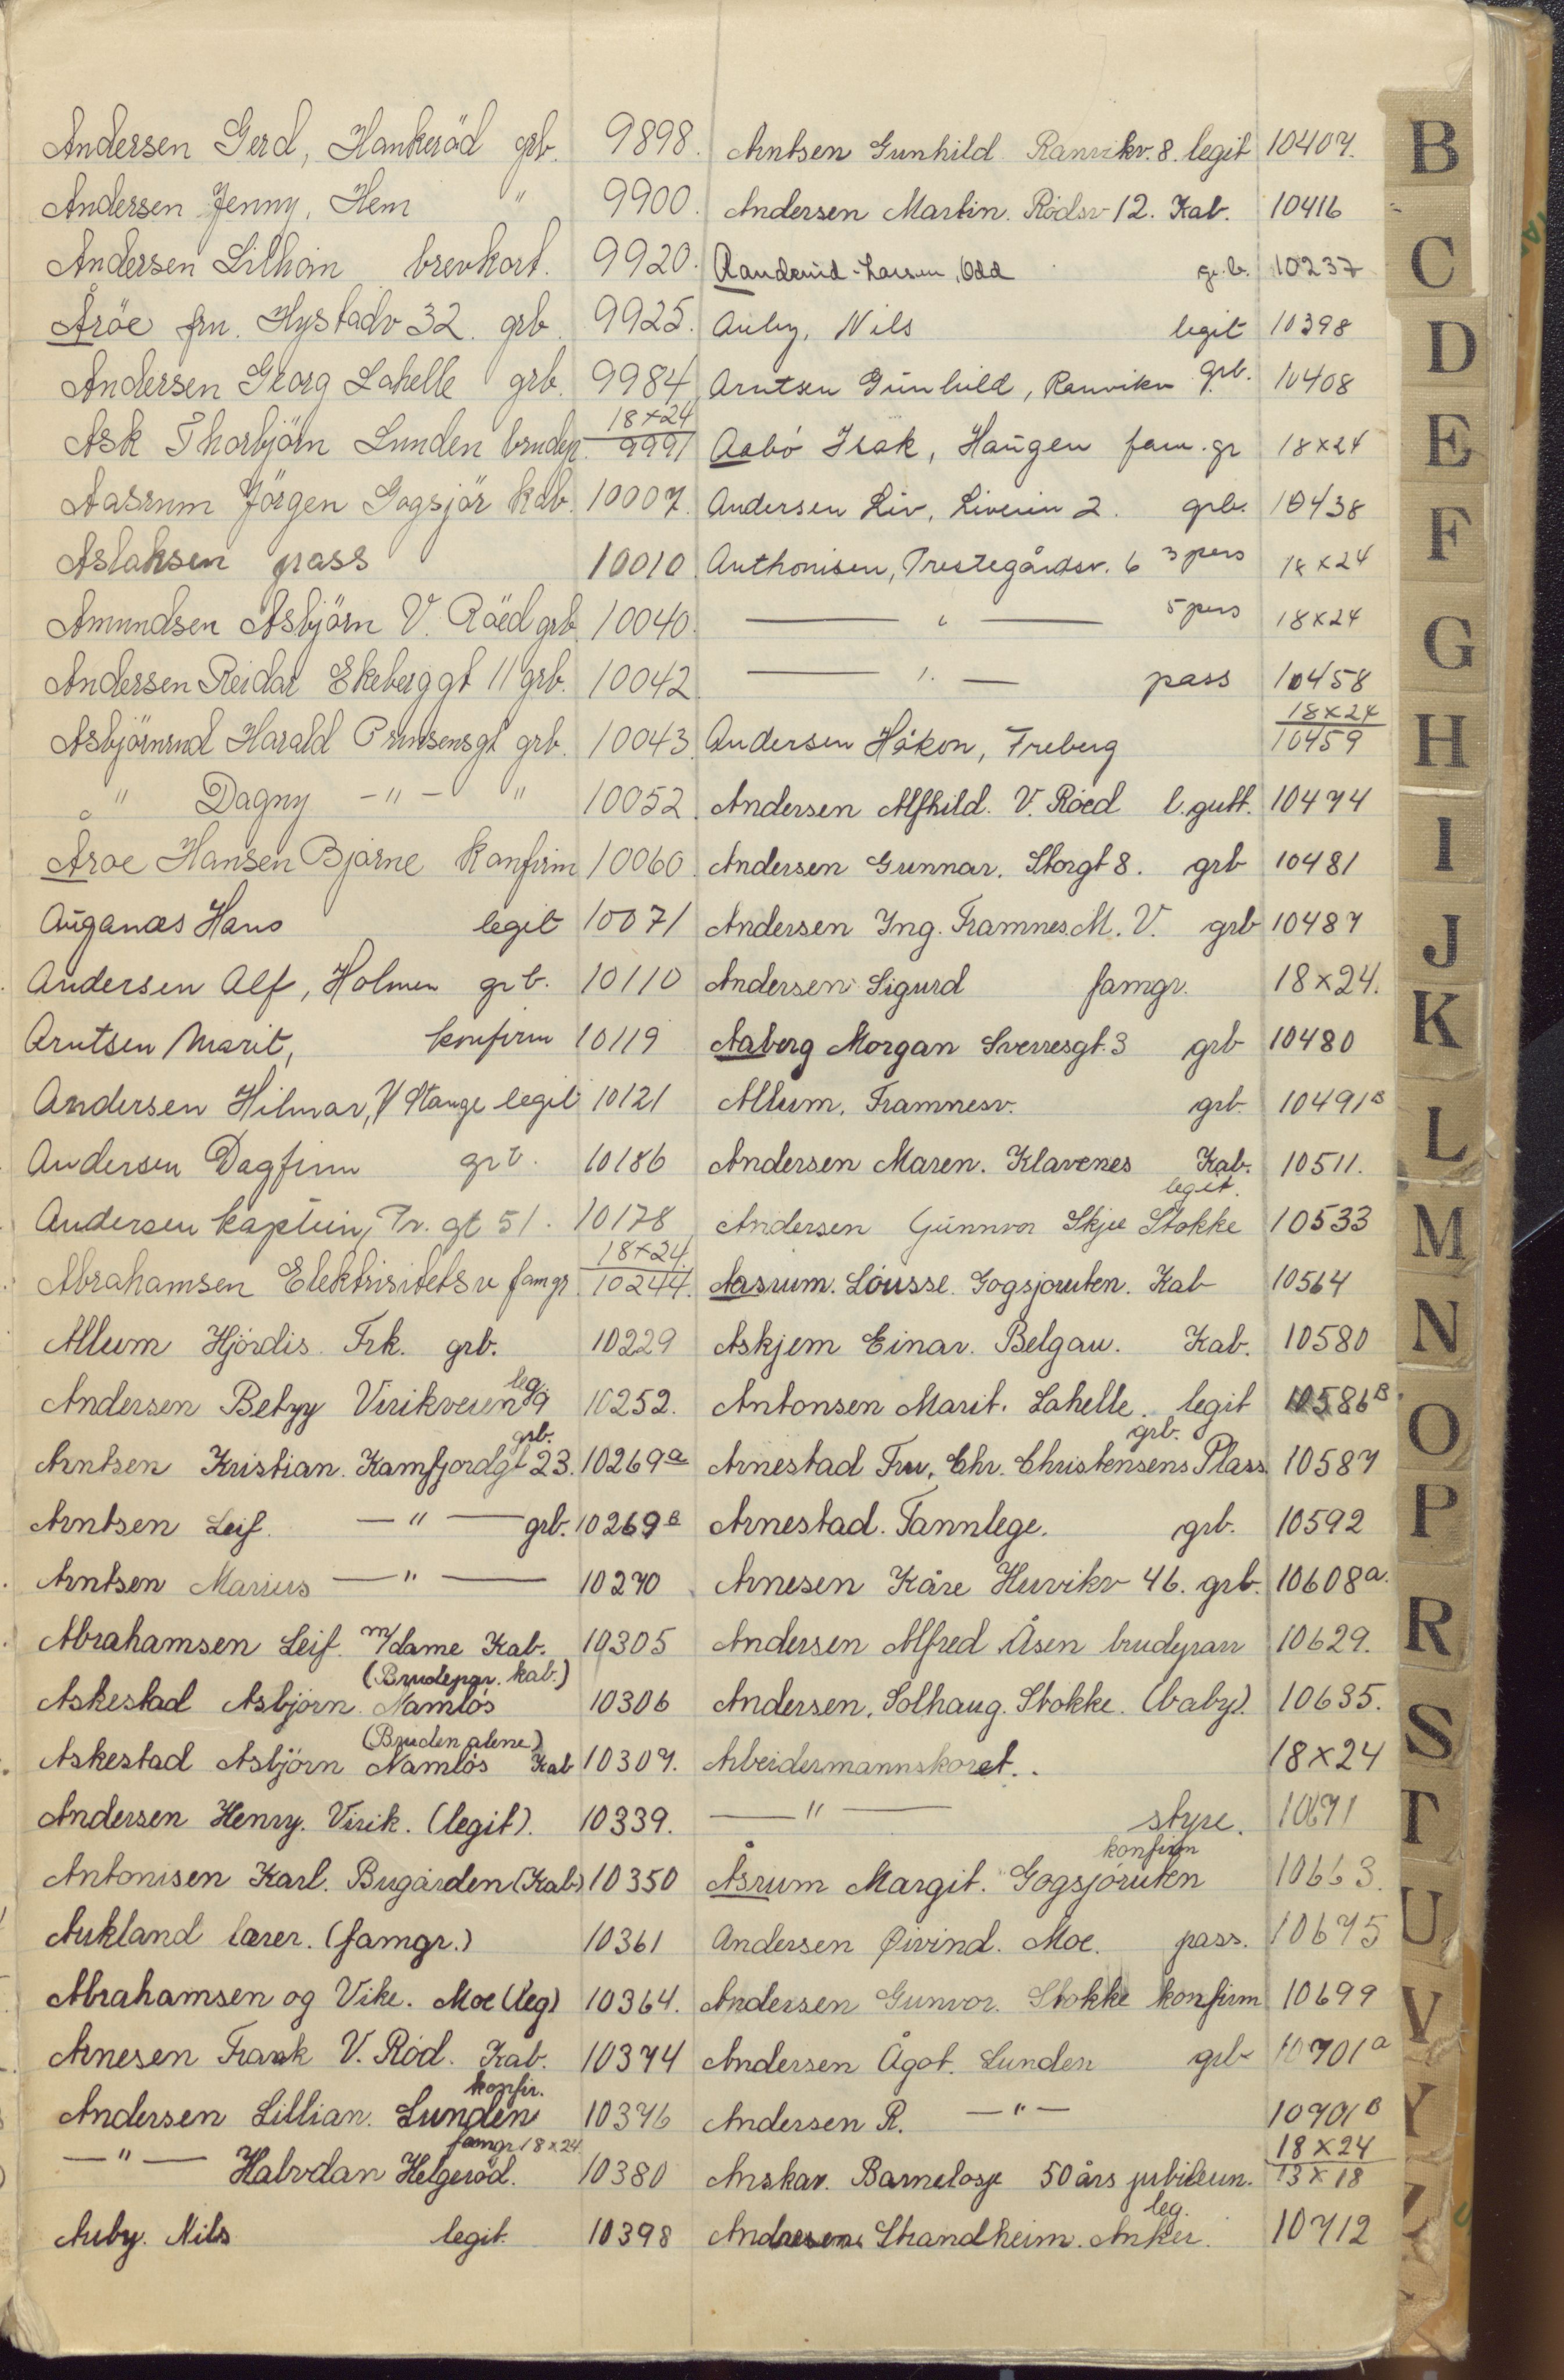 Andersen Gerd, Hankeröd grb. 9898.
Andersen Jenny, Hem " 9900.
Andersen Lilhöin brevkort. 9920.
Åröe fru. Hystadv 32. grb. 9925.
Andersen Georg Lahelle grb. 9984
18×24
Ask Thorbjörn Lunden brudep. 9991
Aasrum Jörgen Gogsjör kab. 10007.
Aslaksen pass 10010
Amundsen Asbjörn V. Röed grb 10040.
Andersen Reidar Ekeberggt 11 grb. 10042.
Asbjörnrud Harald Prinsensgt grb. 10043.
" Dagny -"- " 10052.
Åroe Hansen Bjarne konfirm 10060.
Auganæs Hans legit 10071
Andersen Alf, Holmen grb. 10110
Arntsen Marit, konfirm 10119
Andersen Hilmar, V Stange legit 10121
Andersen Dagfinn grb. 10186
Andersen kaptein, Pr. gt 51. 10178
18×24
Abrahamsen Elektrisitetsv famgr. 10244.
Allum Hjördis. Frk. grb. 10229
leg.
Andersen Betzy Virikveien 79 10252.
grb.
Arntsen Kristian. Kamfjordgt 23. 10269a
Arntsen Leif. —"— grb. 10269B
Arntsen Marius —"— 10270
Abrahamsen Leif. m/dame Kab. 10305
(Brudepgr. kab.)
Askestad Asbjörn. Namlös 10306
(Bruden alene)
Askestad Asbjörn Namlös Kab 10307.
Andersen Henry. Virik. (legit). 10339.
Antonisen Karl. Bugården (Kab) 10350
Aukland lærer. (famgr.) 10361
Abrahamsen og Vike. Moe (leg) 10364.
Arnesen Frank V. Röd. Kab. 10374
konfir.
Andersen Lillian. Lunden 10376
famgr. 18×24
—"— Halvdan Helgeröd. 10380
Auby. Nils legit. 10398
Arntsen Gunhild. Ranvikv. 8. legit 10407.
Andersen Martin. Rødsv 12. Kab. 10416
Aanderud-Larsen, Odd gr.b. 10237
Auby, Nils legit 10398
Arntsen Gunhild, Ranvikv grb. 10408
Aabö Isak, Haugen fam.gr 18×24
Andersen Liv, Liveien 2. grb. 10438
Anthonisen, Prestegårdsv. 6 3 pers 18×24
— " — 5 pers 18×24
— " — pass 10458
18×24
Andersen Håkon, Freberg 10459
Andersen Alfhild. V. Röed l.gutt. 10474
Andersen Gunnar. Storgt 8. grb 10481
Andersen Ing. Framnes M. V. grb 10487
Andersen Sigurd famgr. 18×24.
Aaberg Morgan Sverresgt. 3 grb 10480
Allum, Framnesv. grb. 10491B
Andersen Maren. Klavenes Kab. 10511.
legit.
Andersen Gunnvor Skjee Stokke 10533
Aasrum. Lousse. Gogsjoruten. Kab 10564
Askjem Einar. Belgau. Kab. 10580
Antonsen Marit. Lahelle. legit 10586B
grb.
Arnestad Fru, Chr. Christensens Plass 10587
Arnestad. Tannlege. grb. 10592
Arnesen Kåre Huvikv 46. grb. 10608a.
Andersen Alfred Åsen brudeparr 10629.
Andersen, Solhaug. Stokke. (baby). 10635.
Arbeidermannskoret.. 18×24
—"— styre. 10671
konfirm
Åsrum Margit. Gogsjöruten 10663.
Andersen Øivind. Moe. pass. 10675
Andersen Gunvor. Stokke konfirm 10699
Andersen Ågot. Lunden grb 10701a
Andersen R. —"— 10701B
18×24
Anskar. Barnelosje 50 års jubileum. 13×18
leg.
Andresen Strandheim. Anker. 10712
B
C
D
E
F
G
H
I
J
K
L
M
N
O
P
R
S
T
U
V
Y
Z